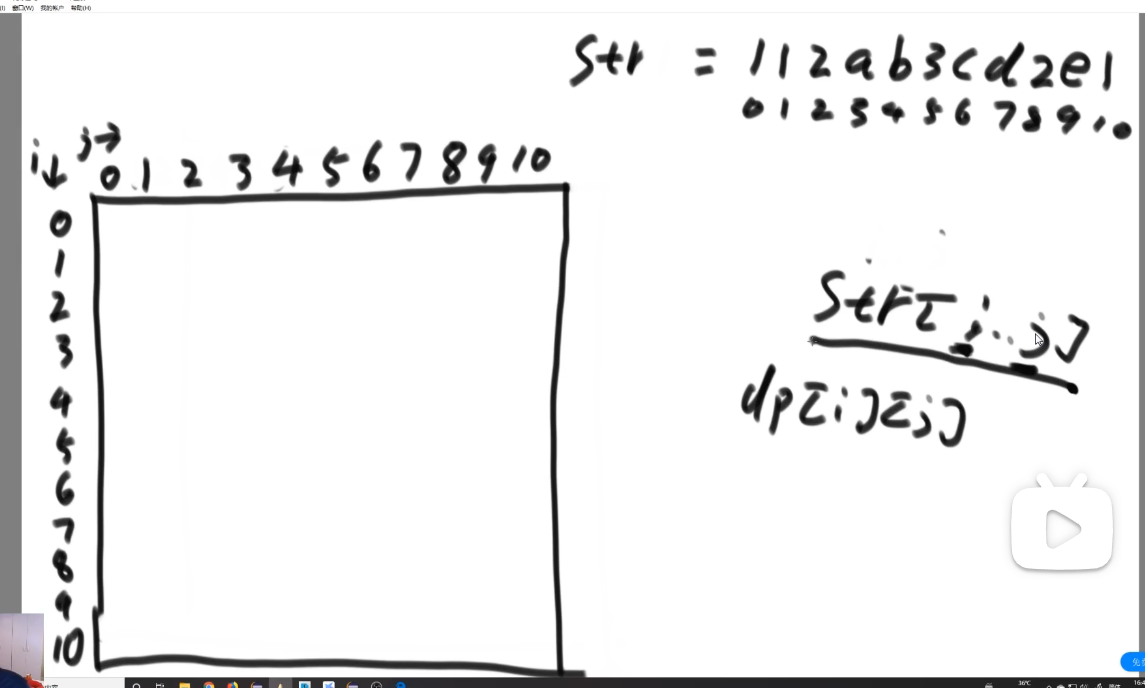 窗口(W) 我的帐户 帮助(H)
Str = 112ab3cd2e1
0 1 2 3 4 5 6 7 8 9 10
i↓ j→ 0 1 2 3 4 5 6 7 8 9 10
0
1
2
3
4
5
6
7
8
9
10
Str[i..j]
dp[i][j]
36℃